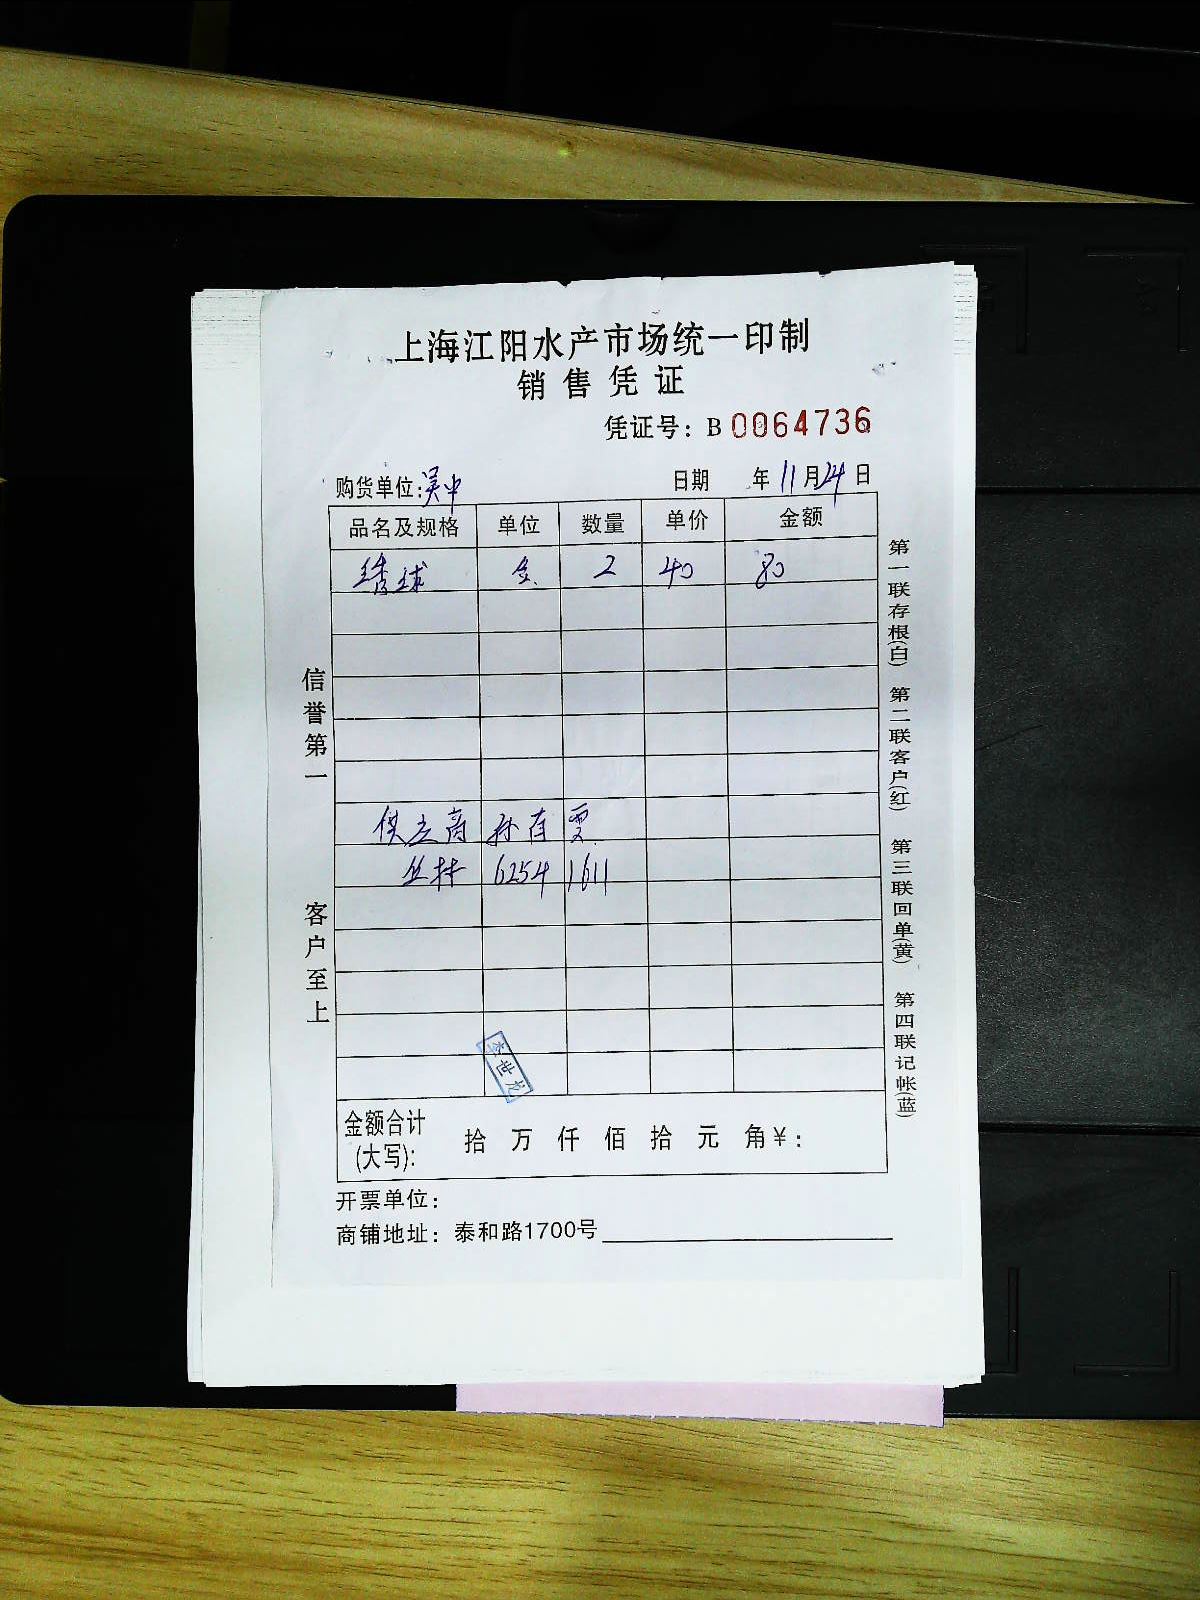 上海江阳水产市场统一印制
销售凭证
凭证号：B 0064736
购货单位:吴中 日期 年11月24日
品名及规格 单位 数量 单价 金额
绣球 2 40 80
供应商 孙百雯
丛林 6254 1611
李世龙
金额合计(大写): 拾 万 仟 佰 拾 元 角¥:
开票单位：
商铺地址：泰和路1700号
信誉第一 客户至上
第一联存根(白) 第二联客户(红) 第三联回单(黄) 第四联记帐(蓝)